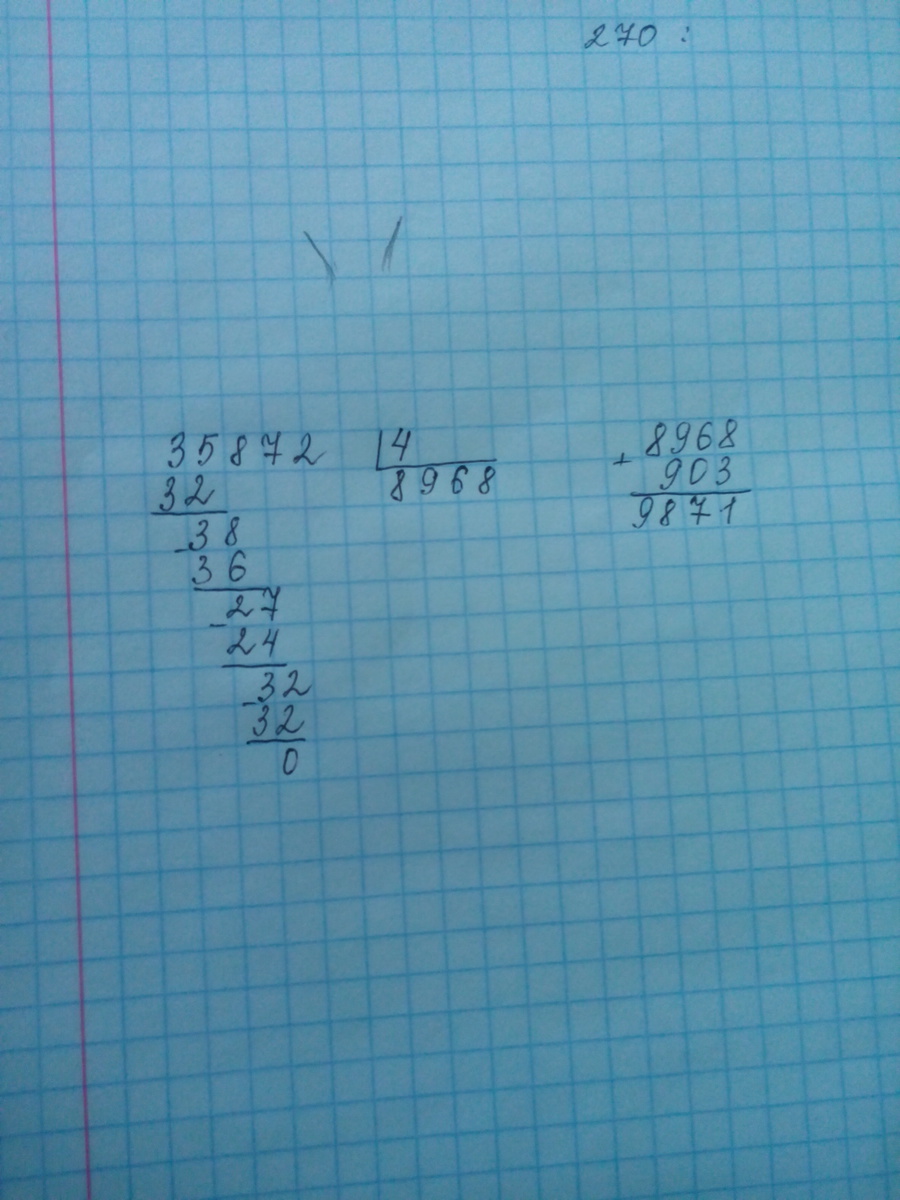 270 :
35872 4
32 8968
-38
36
-27
24
-32
32
0
8968
+ 903
9871